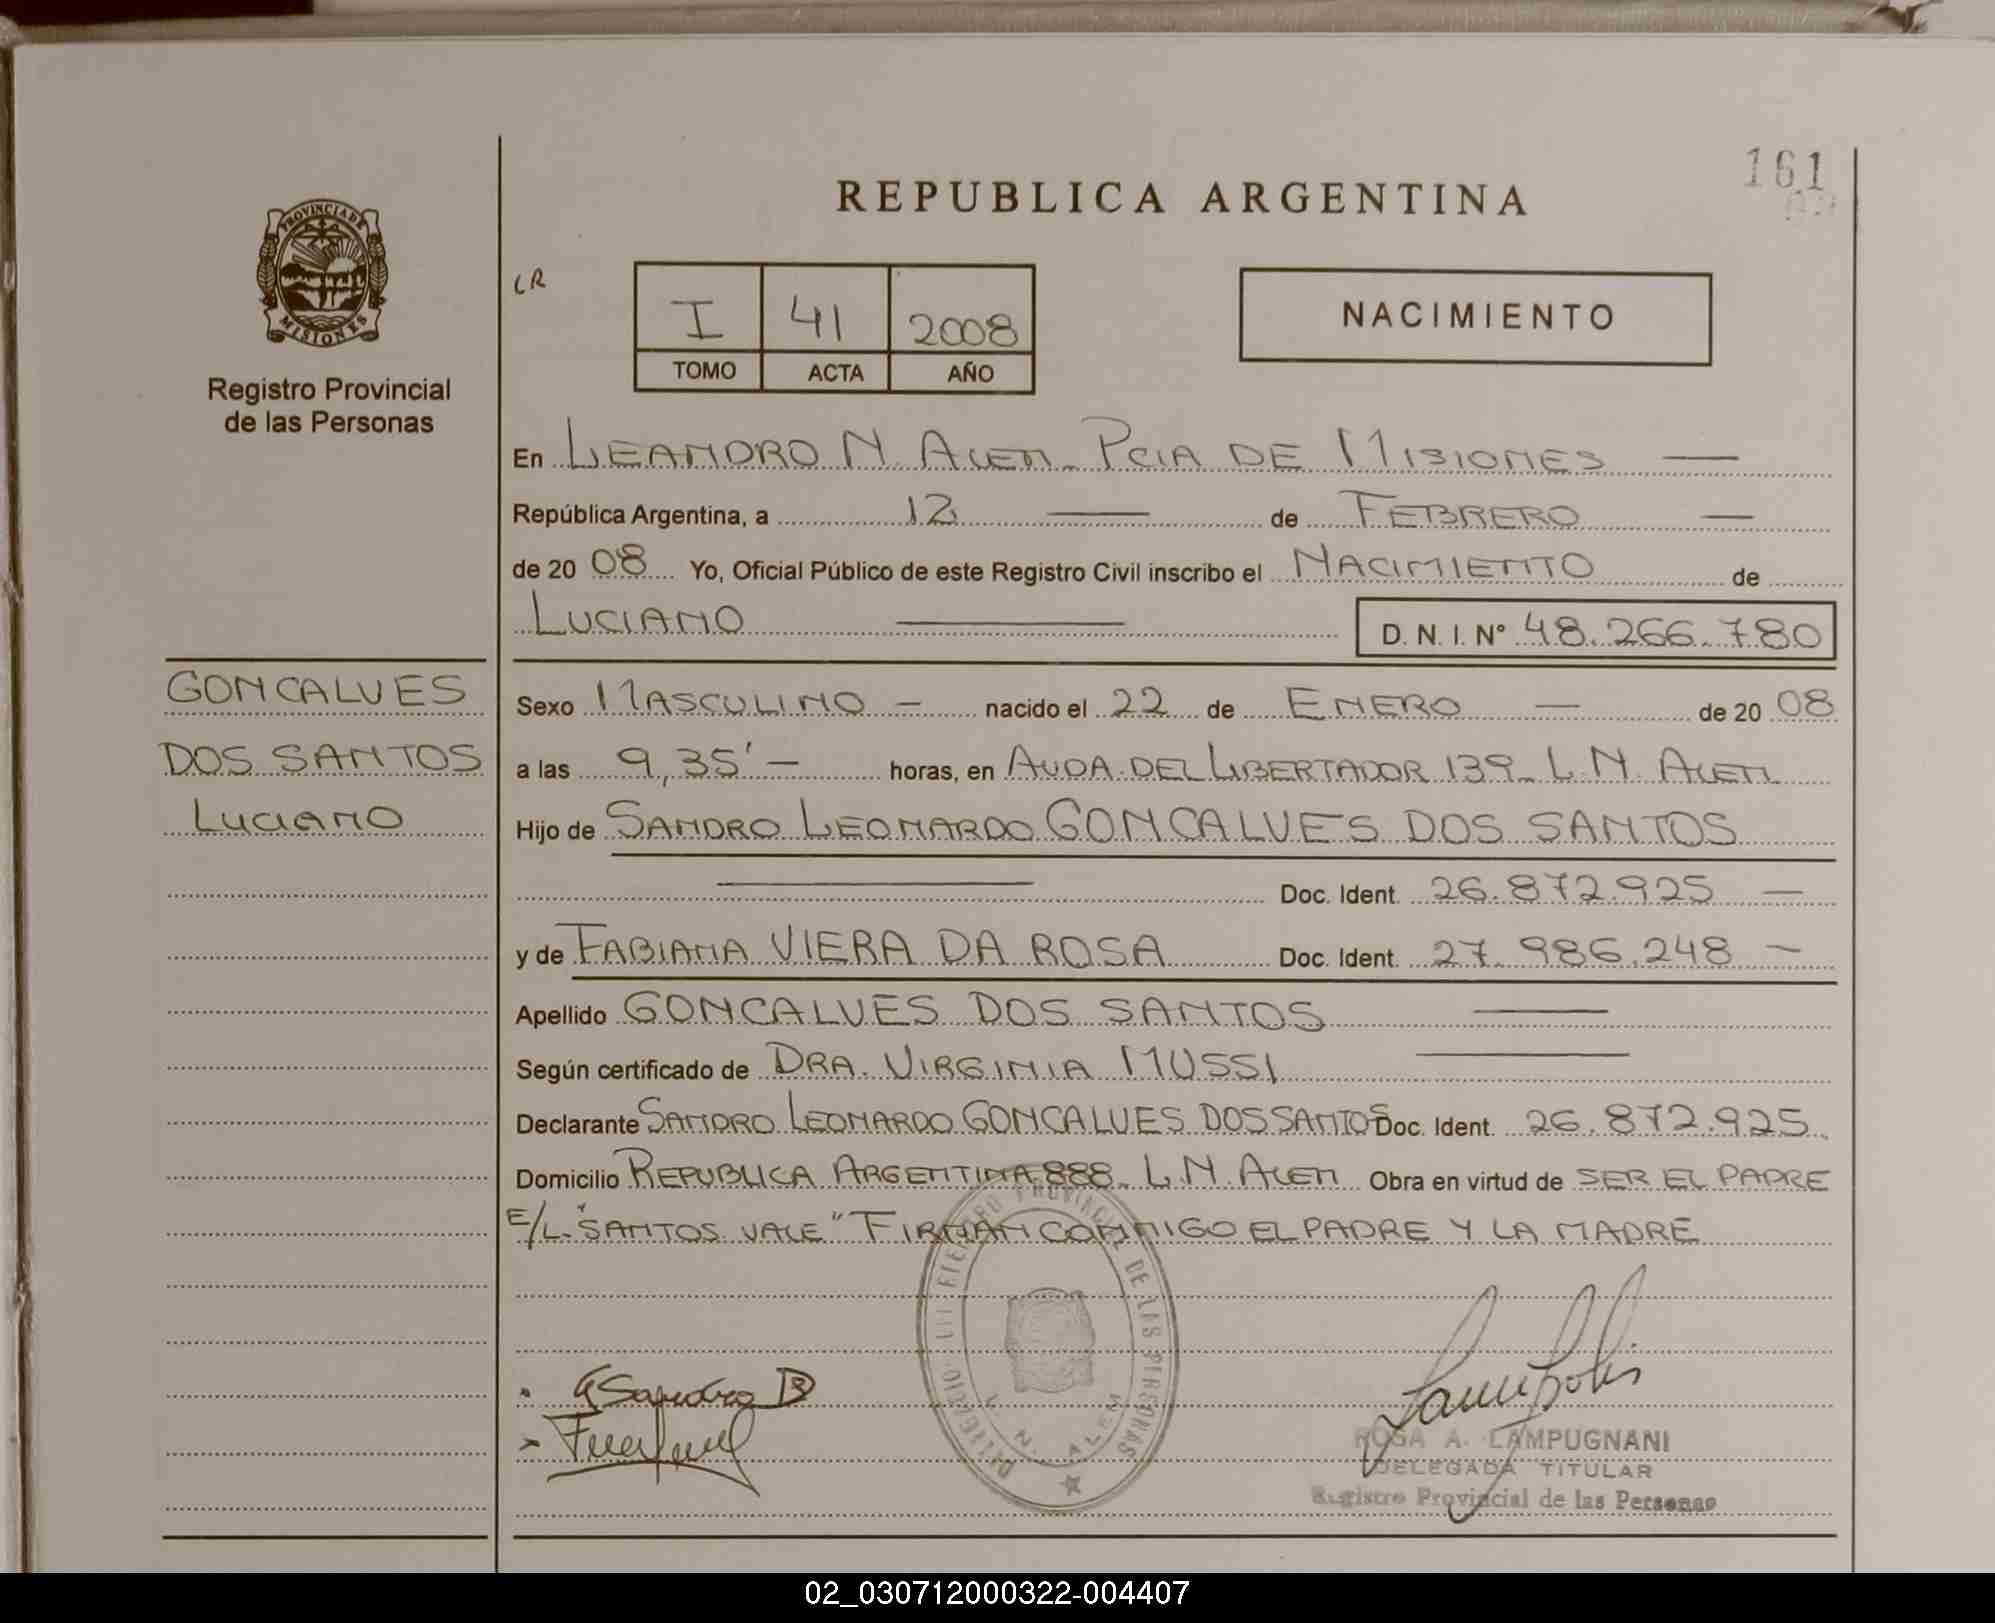 REPUBLICA ARGENTINA
161
PROVINCIA DE
MISIONES
Registro Provincial
de las Personas
LR
I 41 2008
TOMO ACTA AÑO
NACIMIENTO
En LEANDRO N. ALEM. PCIA DE MISIONES —
República Argentina, a 12 — de FEBRERO —
de 2008 Yo, Oficial Público de este Registro Civil inscribo el NACIMIENTO de
LUCIANO — D. N. I. Nº 48.266.780
GONCALVES
DOS SANTOS
LUCIANO
Sexo MASCULINO — nacido el 22 de ENERO — de 2008
a las 9,35' — horas, en AVDA. DEL LIBERTADOR 139. L. N. ALEM
Hijo de SANDRO LEONARDO GONCALVES DOS SANTOS
— Doc. Ident. 26.872.925 —
y de FABIANA VIERA DA ROSA Doc. Ident. 27.986.248 —
Apellido GONCALVES DOS SANTOS —
Según certificado de DRA. VIRGINIA MUSSI —
Declarante SANDRO LEONARDO GONCALVES DOS SANTOS Doc. Ident. 26.872.925.
Domicilio REPUBLICA ARGENTINA 888. L. N. ALEM Obra en virtud de SER EL PADRE
E/L. "SANTOS VALE" FIRMAN CONMIGO EL PADRE Y LA MADRE
PROVINCIAL DE LAS PERSONAS
L. N. ALEM
ROSA A. LAMPUGNANI
DELEGADA TITULAR
Registro Provincial de las Personas
02_030712000322-004407